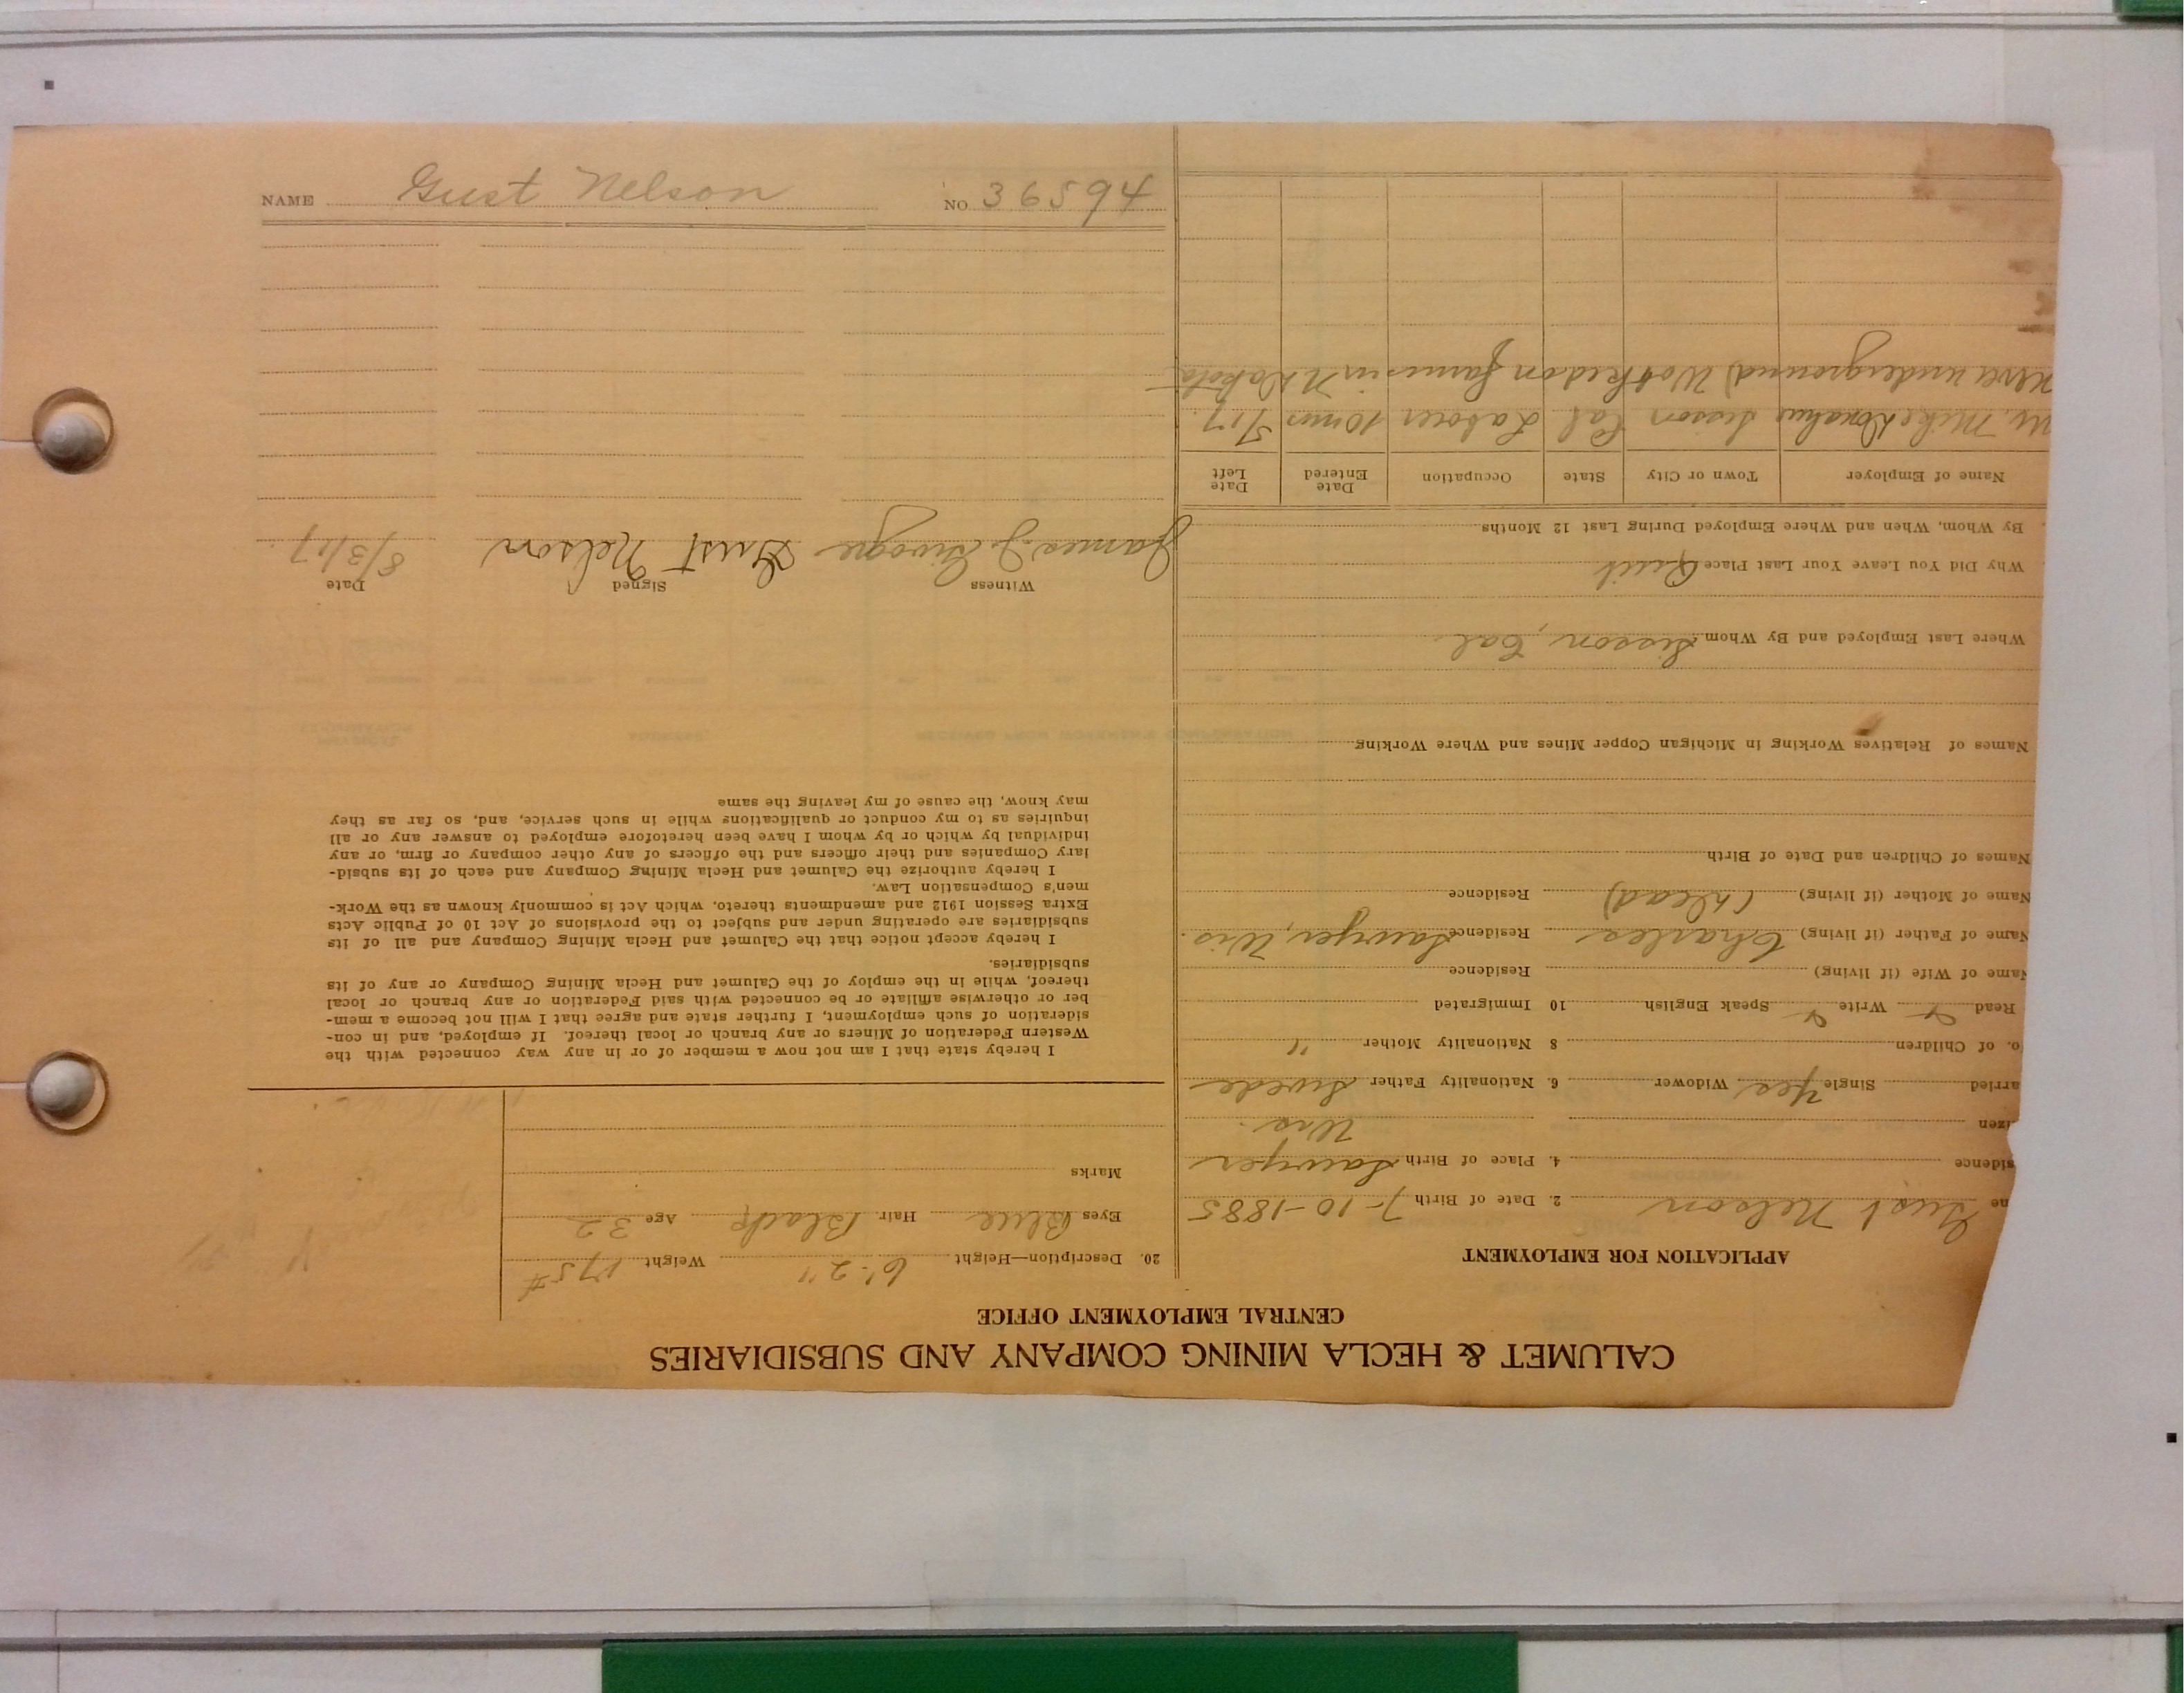 CALUMET & HECLA MINING COMPANY AND SUBSIDIARIES
CENTRAL EMPLOYMENT OFFICE
APPLICATION FOR EMPLOYMENT
me Gust Nelson 2. Date of Birth 7-10-1885
sidence 4. Place of Birth Sawyer
izen Wis.
arried Single Yes Widower 6. Nationality Father Swede
o. of Children 8 Nationality Mother "
Read Write Speak English 10 Immigrated
Name of Wife (if living) Residence
Name of Father (if living) Charles Residence Sawyer, Wis.
Name of Mother (if living) (Dead) Residence
Names of Children and Date of Birth
Names of Relatives Working in Michigan Copper Mines and Where Working
Where Last Employed and By Whom Sisson, Cal
Why Did You Leave Your Last Place Quit
. By Whom, When and Where Employed During Last 12 Months
Name of Employer Town or City State Occupation Date Entered Date Left
Mr. Mike Donahue Sisson Cal Laborer 10 mos 5/17.
Never underground) Worked on farms in N Dakota
20. Description—Height 6'-2" Weight 175#
Eyes Blue Hair Black Age 32
Marks
I hereby state that I am not now a member of or in any way connected with the
Western Federation of Miners or any branch or local thereof. If employed, and in con-
sideration of such employment, I further state and agree that I will not become a mem-
ber or otherwise affiliate or be connected with said Federation or any branch or local
thereof, while in the employ of the Calumet and Hecla Mining Company or any of its
subsidiaries.
I hereby accept notice that the Calumet and Hecla Mining Company and all of its
subsidiaries are operating under and subject to the provisions of Act 10 of Public Acts
Extra Session 1912 and amendments thereto, which Act is commonly known as the Work-
men's Compensation Law.
I hereby authorize the Calumet and Hecla Mining Company and each of its subsid-
iary Companies and their officers and the officers of any other company or firm, or any
individual by which or by whom I have been heretofore employed to answer any or all
inquiries as to my conduct or qualifications while in such service, and, so far as they
may know, the cause of my leaving the same
Witness Signed Date
James J. Gust Nelson 8/3/17.
NAME Gust Nelson NO 36594